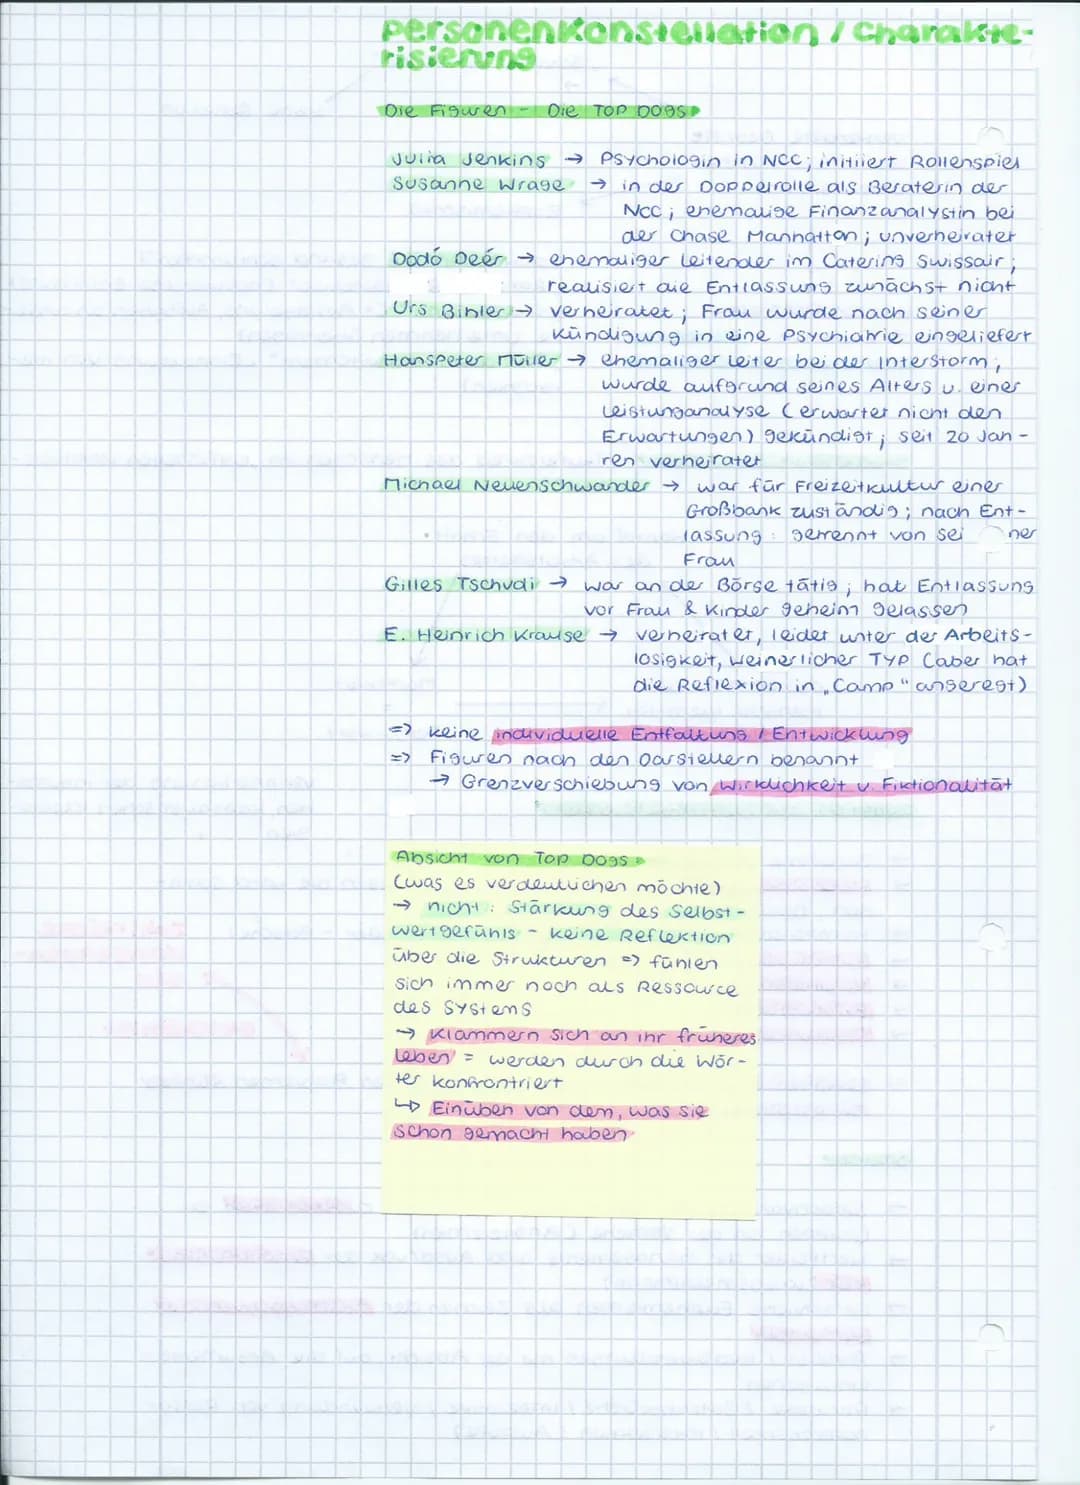 Personenkonstellation / Charakte-
risierung
Die Figuren - Die TOP DOGS
Julia Jenkins → Psychologin in NCC; initiiert Rollenspiel
Susanne Wrage → in der Doppelrolle als Beraterin der
NCC; ehemalige Finanzanalystin bei
der Chase Manhatton; unverheiratet
Dodó Deér → ehemaliger Leitender im Catering Swissair;
realisiert die Entlassung zunächst nicht
Urs Bihler → verheiratet; Frau wurde nach seiner
Kündigung in eine Psychiatrie eingeliefert
Hanspeter Müller → ehemaliger Leiter bei der Interstorm;
wurde aufgrund seines Alters u. einer
Leistunganalyse (erwartet nicht den
Erwartungen) gekündigt; seit 20 Jah-
ren verheiratet
Michael Neuenschwander → war für Freizeitkultur einer
Großbank zuständig; nach Ent-
lassung: getrennt von sei ner
Frau
Gilles Tschudi → war an der Börse tätig; hat Entlassung
vor Frau & Kinder geheim gelassen
E. Heinrich Krause → verheiratet, leidet unter der Arbeits-
losigkeit, weinerlicher Typ (aber hat
die Reflexion in „Camp" angeregt)
=> keine individuelle Entfaltung / Entwicklung
=> Figuren nach den Darstellern benannt
→ Grenzverschiebung von Wirklichkeit u. Fiktionalität
Absicht von Top Dogs
(was es verdeutlichen möchte)
→ nicht: Stärkung des Selbst-
wertgefühls - keine Reflektion
über die Strukturen => fühlen
sich immer noch als Ressource
des Systems
→ Klammern sich an ihr früheres
Leben = werden durch die Wör-
ter konfrontriert
↳ Einüben von dem, was sie
schon gemacht haben